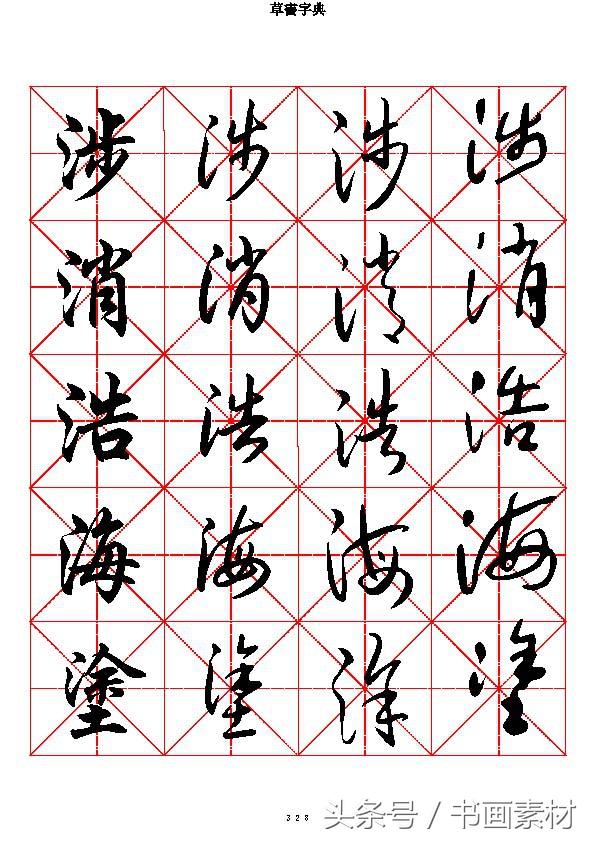 草書字典
涉 涉 涉 涉
消 消 消 消
浩 浩 浩 浩
海 海 海 海
塗 塗 塗 塗
328
头条号 / 书画素材